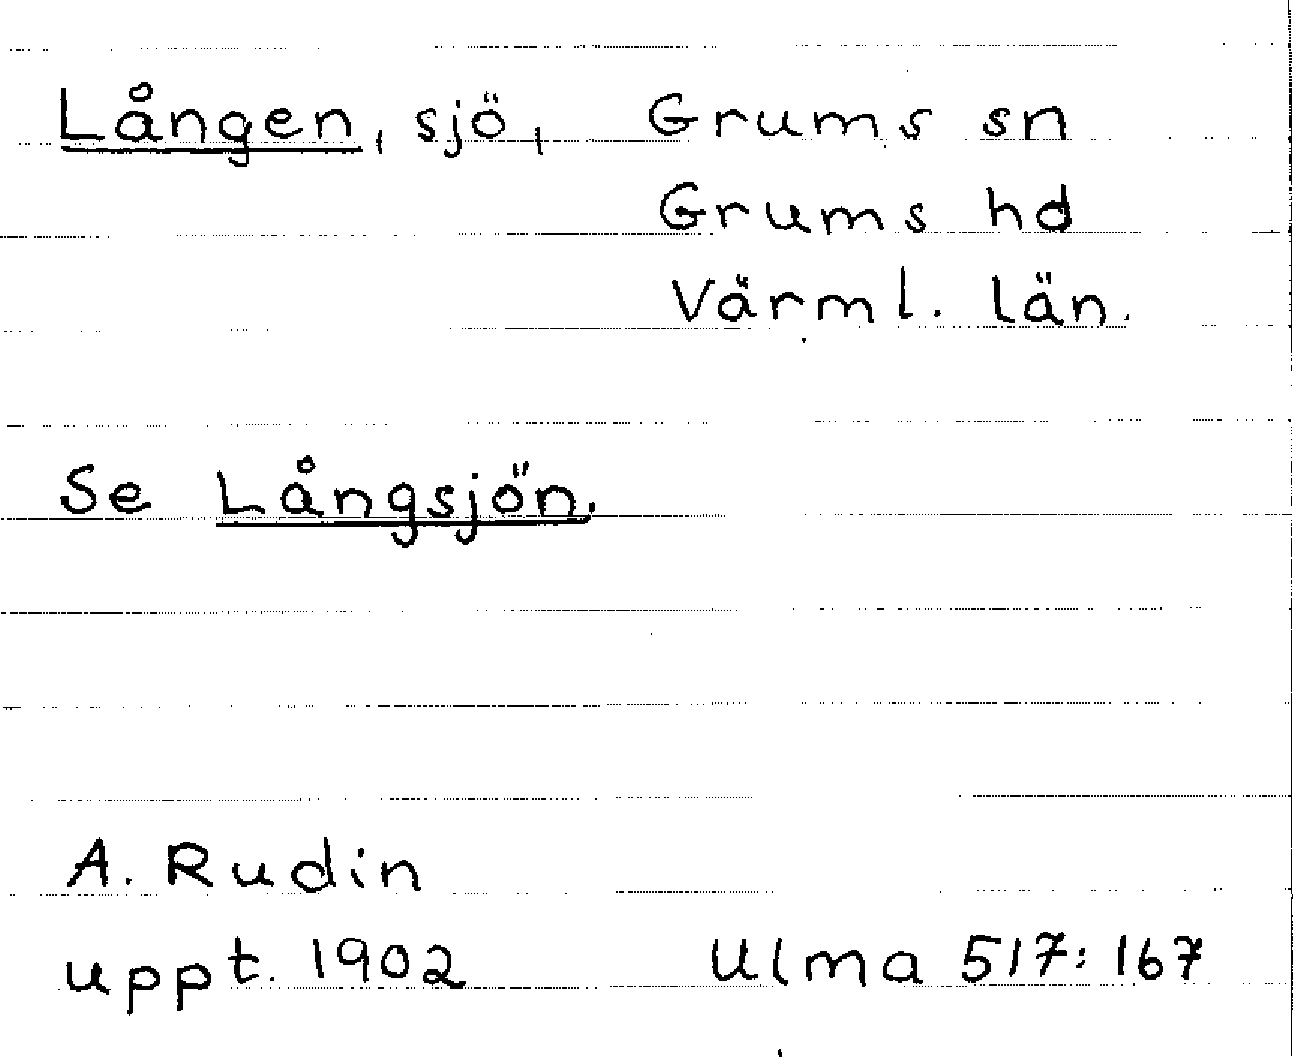 Lången, sjö, Grums sn
Grums hd
Värml. län.
Se Långsjön.
A. Rudin
uppt. 1902 Ulma 517:167